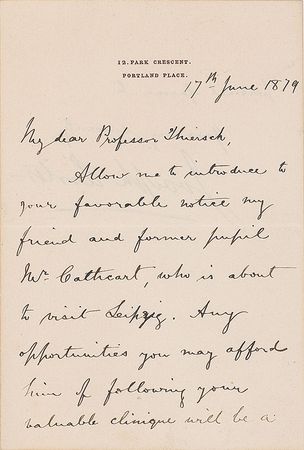 12. PARK CRESCENT.
PORTLAND PLACE.
17th June 1879
My dear Professor Thiersch,
Allow me to introduce to
your favorable notice my
friend and former pupil
Mr. Cathcart, who is about
to visit Leipzig. Any
opportunities you may afford
him of following your
valuable clinique will be a